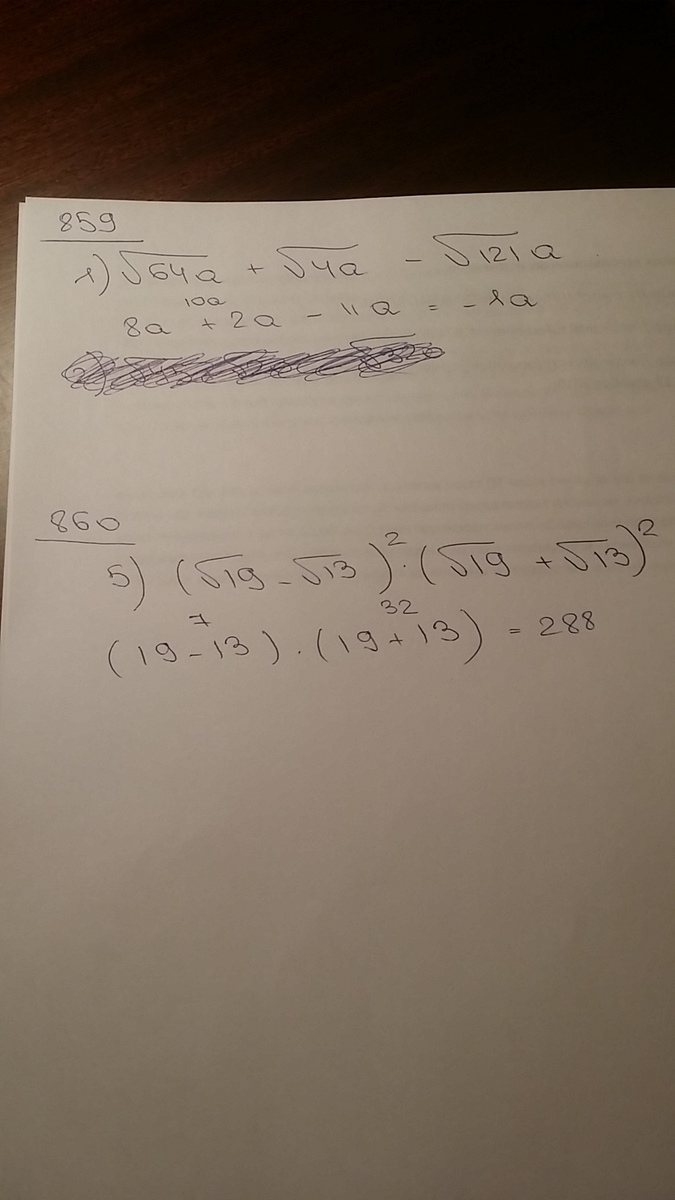 859
1) √64a + √4a - √121a
10a
8a + 2a - 11a = -1a
860
5) (√19 - √13)² · (√19 + √13)²
7 32
(19 - 13) · (19 + 13) = 288